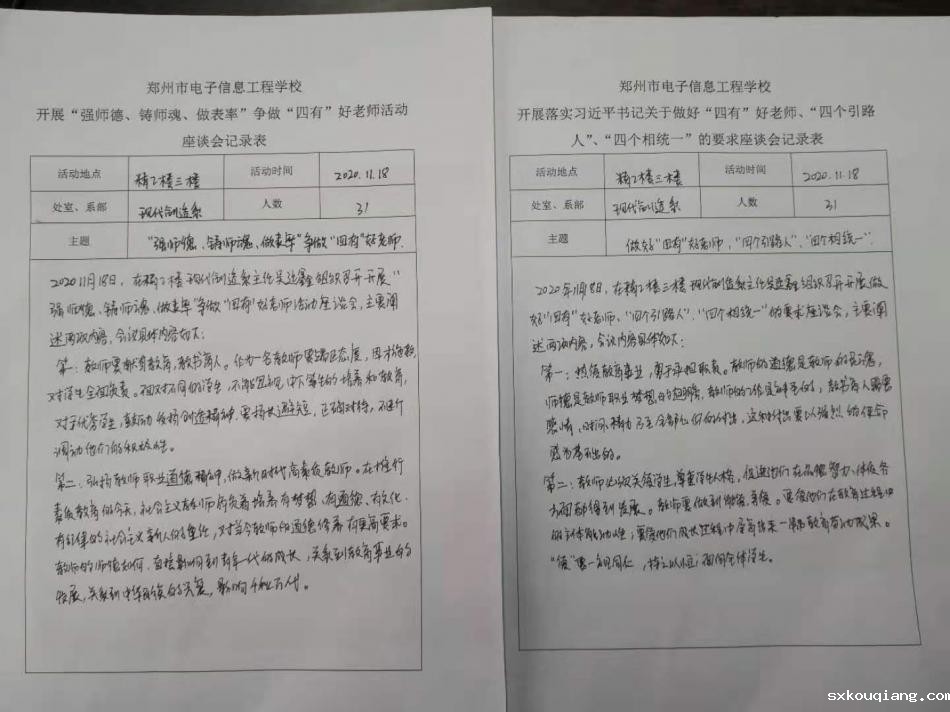 郑州市电子信息工程学校
开展“强师德、铸师魂、做表率”争做“四有”好老师活动
座谈会记录表
活动地点 精工楼三楼 活动时间 2020.11.18
处室、系部 现代制造系 人数 31
主题 “强师德、铸师魂、做表率”争做“四有”好老师.
2020 11月18日,在精工楼现代制造系主任吴 组织召开开展“
强师德、铸师魂、做表率”争做“四有”好老师活动座谈会,主要阐
述两项内容,会议具体内容如下:
第一:教师要 教育,教书育人。作为一名教师要端正态度,因才施教,
对学生全面负责。面对不同的学生,不 中下等生的培养和教育,
对于优秀学生,鼓励发扬创造精神,要扬长避短,正确对待,不断
调动他们的积极性。
第二:弘扬教师职业道德精神,做新时代高素质教师。在推行
素质教育的今天,社会主义教师肩负着培养有梦想、有道德、有文化、
有纪律的社会主义新人的重任,对当今教师的道德修养有更高要求。
教师的师德如何,直接影响到青年一代的成长,关系到教育事业的
发展,关系到中华民族的兴衰,影响千秋万代。
郑州市电子信息工程学校
开展落实习近平书记关于做好“四有”好老师、“四个引路
人”、“四个相统一”的要求座谈会记录表
活动地点 精工楼三楼 活动时间 2020.11.18
处室、系部 现代制造系 人数 31
主题 做好“四有”好老师,“四个引路人”、“四个相统一”.
2020年11月18日,在精工楼三楼现代制造系主任吴 组织召开开展做
好“四有”好老师、“四个引路人”、“四个相统一”的要求座谈会,主要阐
述两项内容,会议内容具体如下:
第一:热爱教育事业,勇于承担职责。教师的道德是教师的灵魂,
师德是教师职业梦想的翅膀,教师的工作是神圣的,教书育人需要
感情、时间、精力乃至全部心血的付出,这种付出要以强烈的使命
感为基础的。
第二:教师必须关爱学生,尊重学生人格,促进他们在品德、智力、体质各
方面都得到发展。教师要做到 。要 他们在教育过程中
的主体能动性;要 他们成长过程中 教育劳动成果。
“爱”要一视同仁,持之以恒;面向全体学生。
sxkouqiang.com